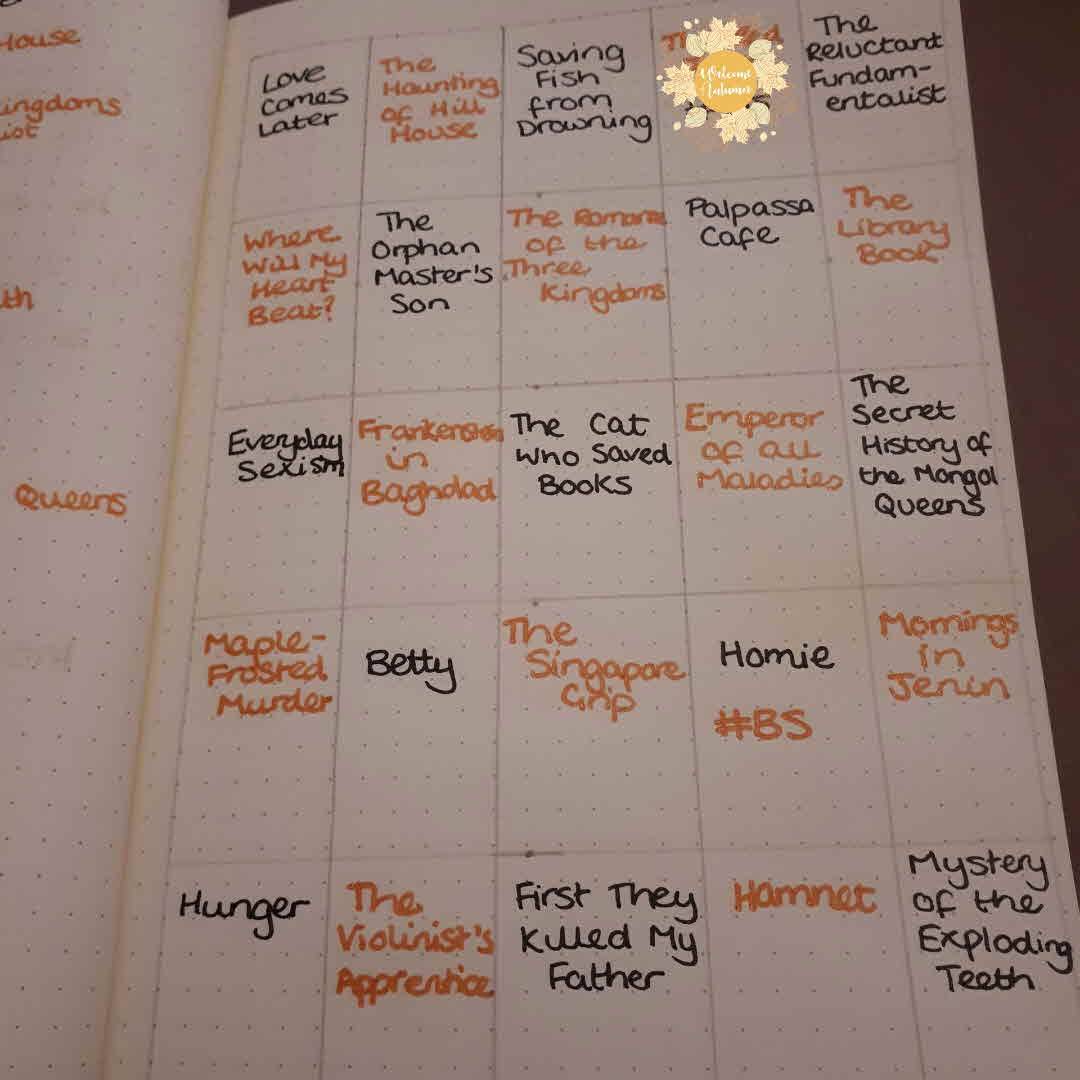 House
ingdoms
iot
th
Queens
Love
Comes
Later
The
Haunting
of Hill
House
Saving
Fish
from
Drowning
Welcome
Autumn
The
Reluctant
Fundam-
entalist
Where
Will My
Heart
Beat?
The
Orphan
Master's
Son
The Romance
of the
Three
Kingdoms
Palpassa
Cafe
The
Library
Book
Everyday
Sexism
Frankenstein
in
Baghdad
The Cat
Who Saved
Books
Emperor
of all
Maladies
The
Secret
History of
the Mongol
Queens
Maple-
Frosted
Murder
Betty
The
Singapore
Grip
Homie
#BS
Mornings
in
Jenin
Hunger
The
Violinist's
Apprentice
First They
Killed My
Father
Hamnet
Mystery
of the
Exploding
Teeth